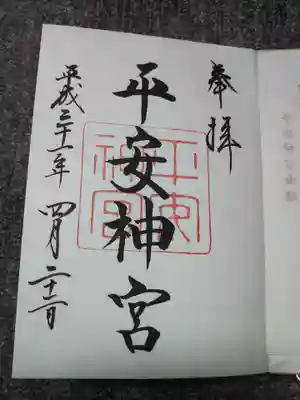 奉拝
平安神宮
平安神宮
平成三十一年四月二十二日